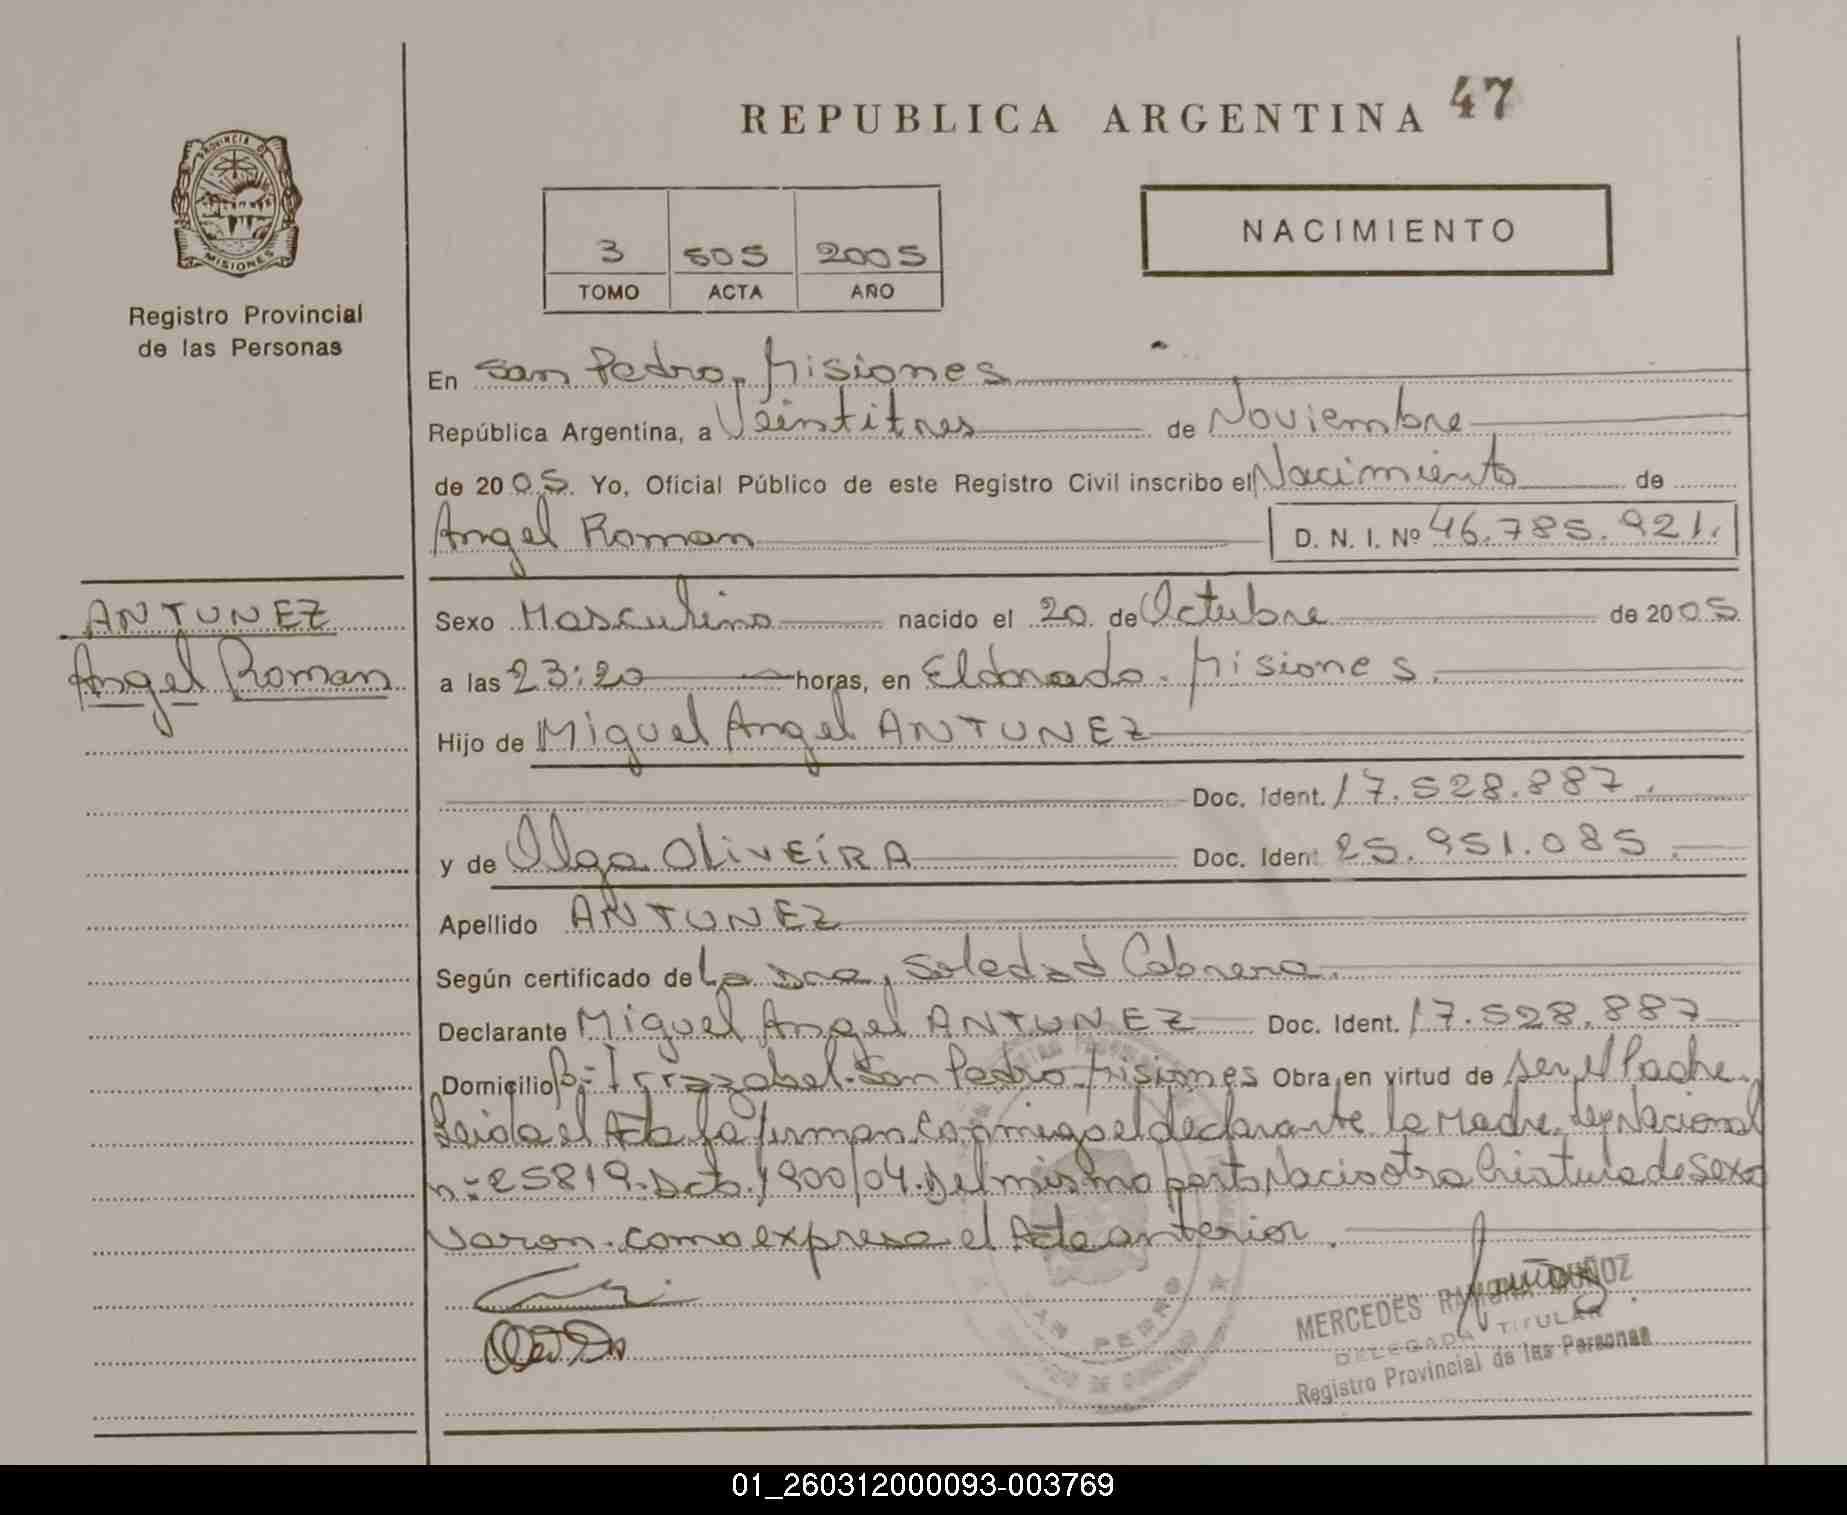 REPUBLICA ARGENTINA 47
PROVINCIA DE
MISIONES
Registro Provincial
de las Personas
NACIMIENTO
3 505 2005
TOMO ACTA AÑO
En San Pedro, Misiones
República Argentina, a Veintitres de Noviembre
de 2005. Yo, Oficial Público de este Registro Civil inscribo el Nacimiento de
Angel Roman D. N. I. Nº 46.785.921.
ANTUNEZ
Angel Roman
Sexo Masculino nacido el 20 de Octubre de 2005
a las 23:20 horas, en Eldorado. Misiones.
Hijo de Miguel Angel ANTUNEZ
Doc. Ident. 17.528.887.
y de Olga OLiVEíRA Doc. Ident 25.951.085.
Apellido ANTUNEZ
Según certificado de La Dra, Soledad Cabrera.
Declarante Miguel Angel ANTUNEZ Doc. Ident. 17.528.887
Domicilio Bº Irrazabal. San Pedro. Misiones Obra en virtud de ser el Padre.
Leida el Acta la firman Conmigo el declarante la Madre. Ley Nacional
nº 25819. Dcto. 1900/04. Del mismo parto Nacio otra Criatura de Sexo
Varon. como expresa el Acta anterior.
MERCEDES RAMONA MUÑOZ
DELEGADA TITULAR
Registro Provincial de las Personas
SAN PEDRO
01_260312000093-003769